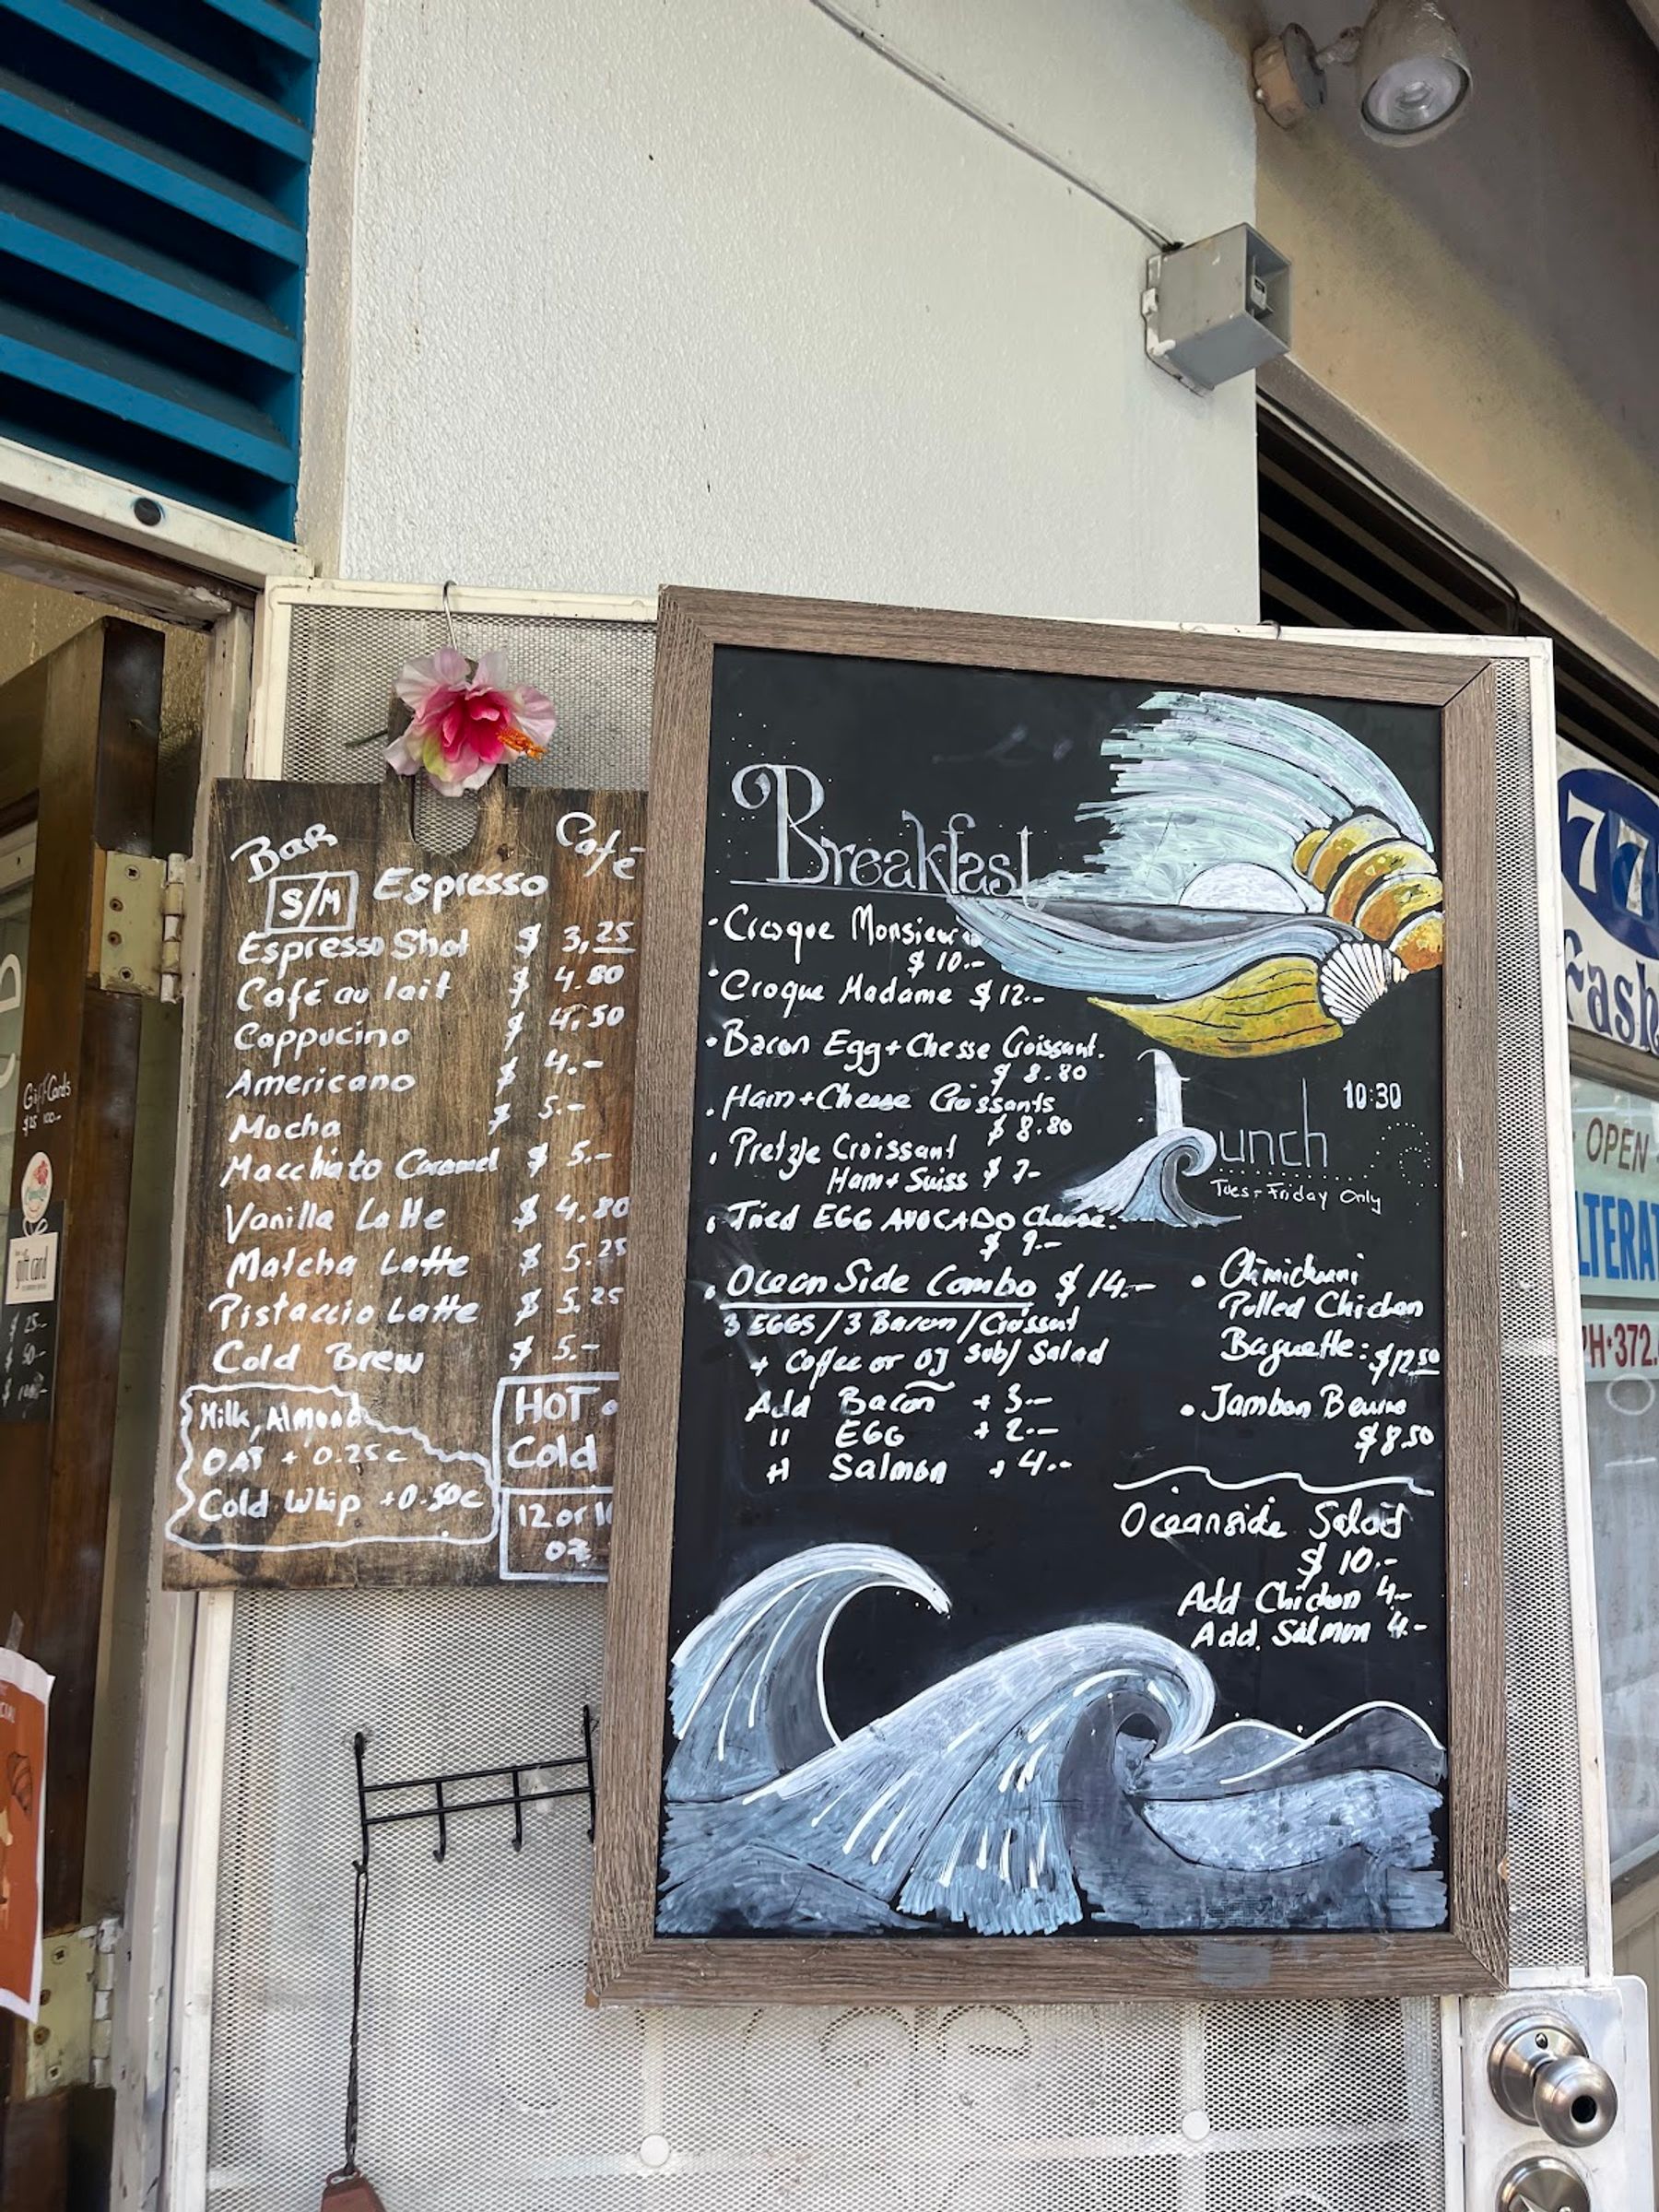 Bar
Café
S/M Espresso
Espresso Shot $ 3,25
Café au lait $ 4.80
Cappucino $ 4,50
Americano $ 4.-
Mocha $ 5.-
Macchiato Caramel $ 5.-
Vanilla Latte $ 4.80
Matcha Latte $ 5.25
Pistaccio Latte $ 5.25
Cold Brew $ 5.-
Milk, Almond
OAT + 0.25c
Cold Whip +0.50c
HOT
Cold
12 or
oz
Breakfast
Croque Monsieur
$ 10.-
Croque Madame $ 12.-
Bacon Egg + Chesse Croissant.
$ 8.80
Ham + Cheese Croissants
$ 8.80
Pretzle Croissant
Ham + Suiss $ 7-
EGG AVOCADO Cheese.
$ 9.-
Ocean Side Combo $ 14.-
3 EGGS / 3 Bacon / Croissant
+ Coffee or OJ Sub/ Salad
Add Bacon + 3.-
" EGG + 2.-
" Salmon + 4.-
Lunch
10:30
Tues - Friday Only
Chimichurri
Pulled Chicken
Baguette: $12.50
Jambon Beurre
$8.50
Oceanside Salad
$ 10.-
Add Chicken 4.-
Add. Salmon 4.-
Gift Cards
$25
gift card
$ 25-
$ 50-
77
Fash
OPEN
LTERAT
PH•372.